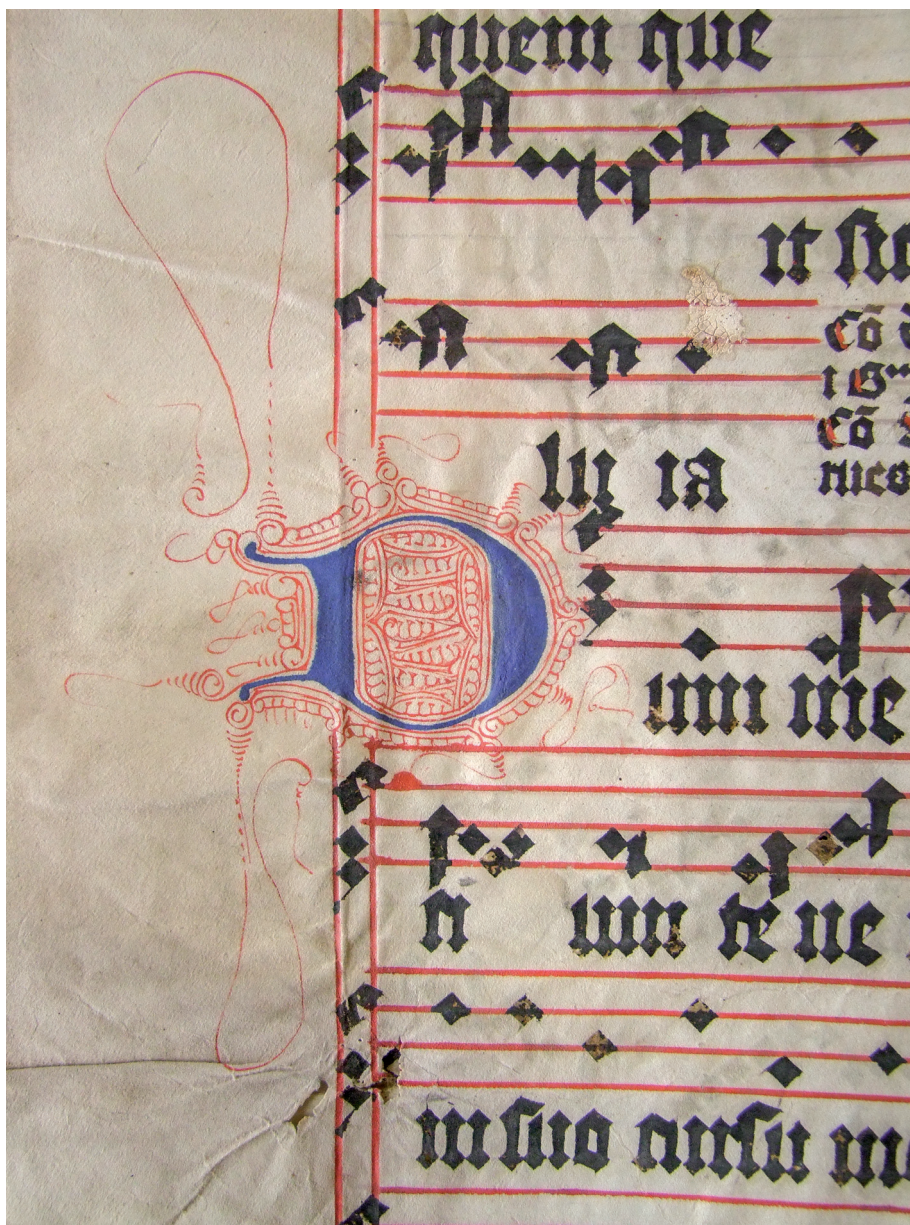 quem que
it sic
Cō
Cō
lu ia
Dum me
n um te ne
in suo cursu me